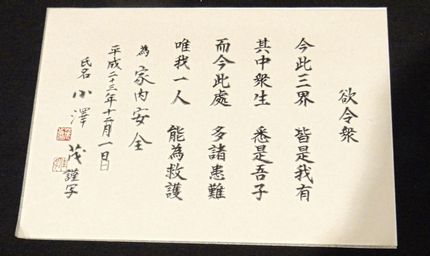 欲令衆
今此三界 皆是我有
其中衆生 悉是吾子
而今此處 多諸患難
唯我一人 能為救護
為 家内安全
平成二十三年十二月一日
氏名 小澤 茂 謹写